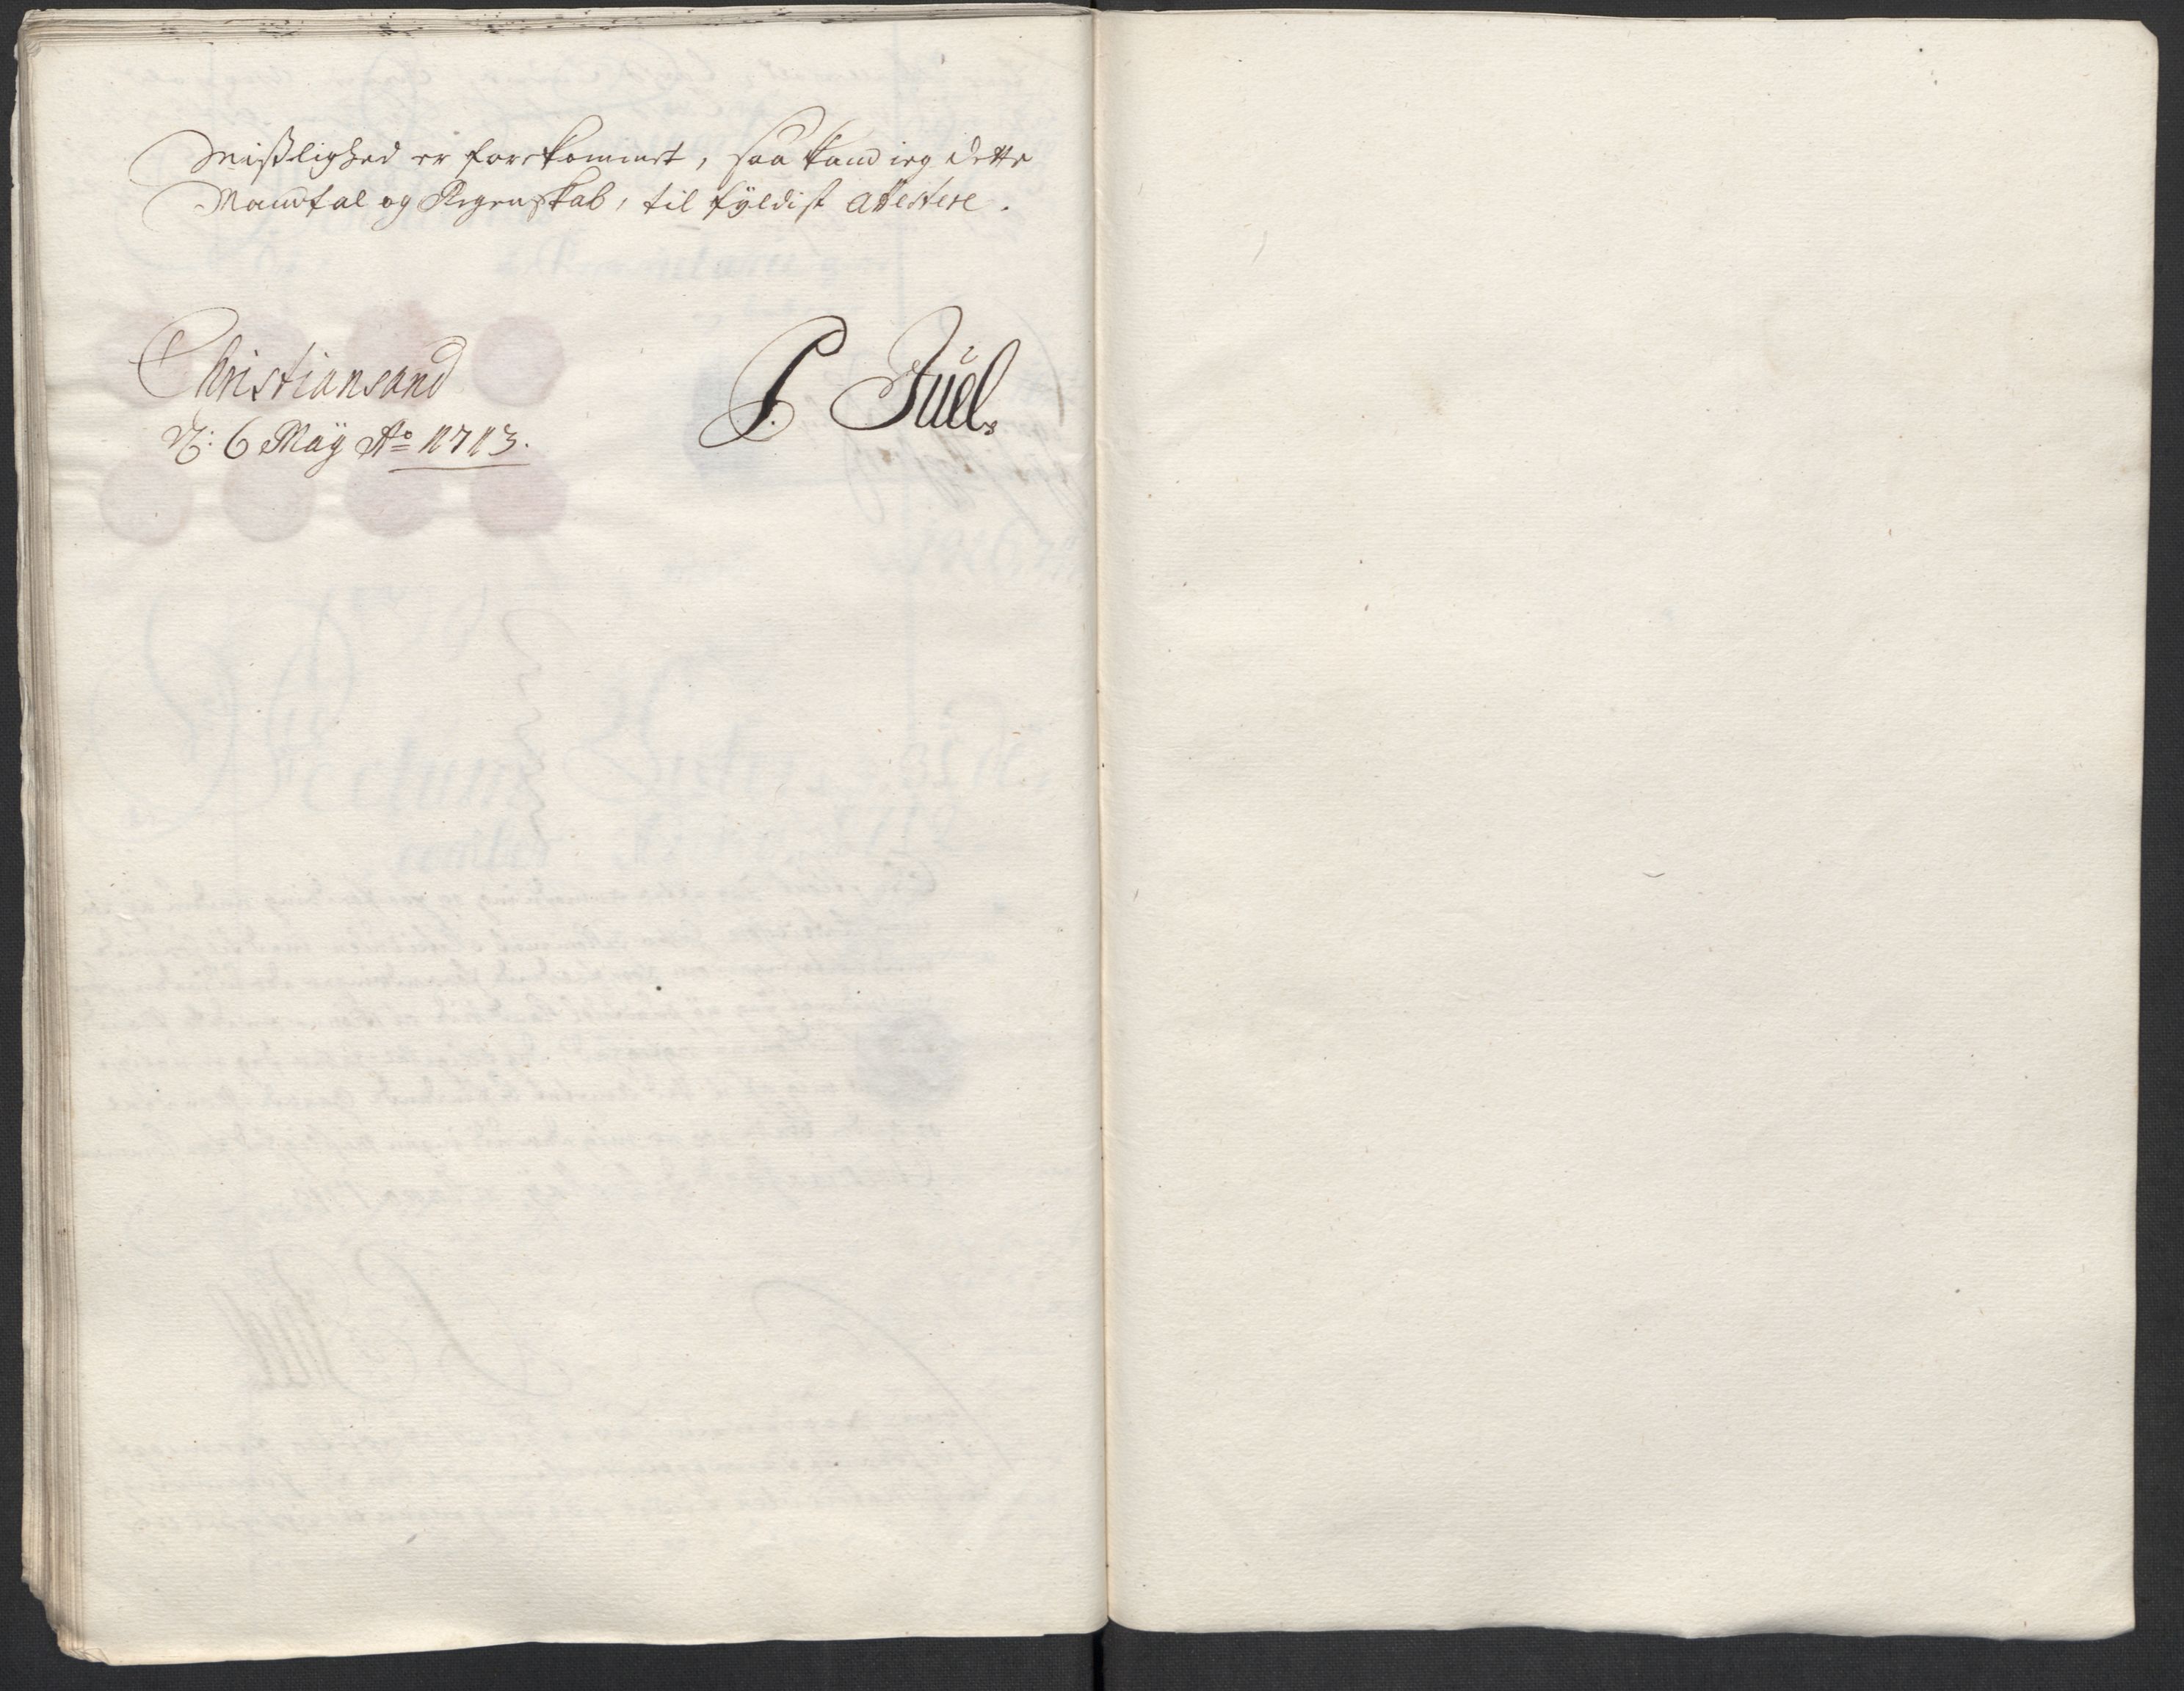 Mislighed er forekommet, saa kand ieg dette
Mandtal og Regenskab, til fyldist attestere.
Christiansand
d: 6 Maÿ Ao 1713.
P. Juel.